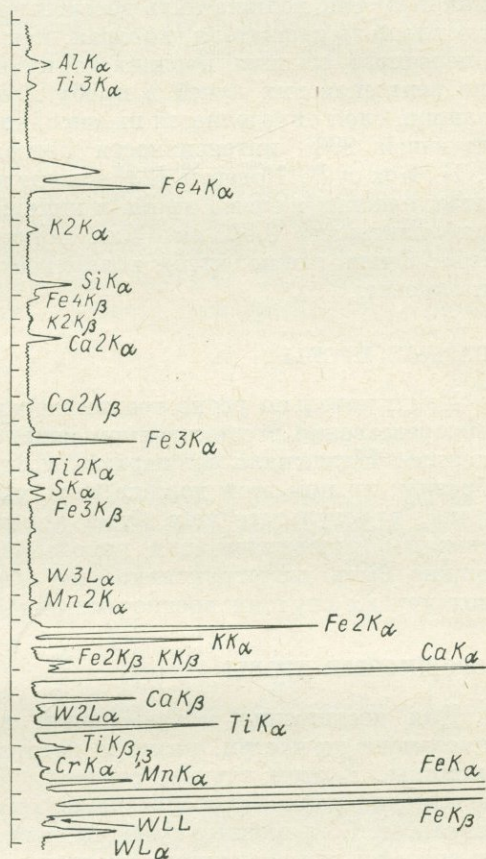 AlKα
Ti3Kα
Fe4Kα
K2Kα
SiKα
Fe4Kβ
K2Kβ
Ca2Kα
Ca2Kβ
Fe3Kα
Ti2Kα
SKα
Fe3Kβ
W3Lα
Mn2Kα
Fe2Kα
KKα
Fe2Kβ KKβ CaKα
CaKβ
W2Lα TiKα
TiKβ1,3
CrKα MnKα FeKα
FeKβ
WLL
WLα